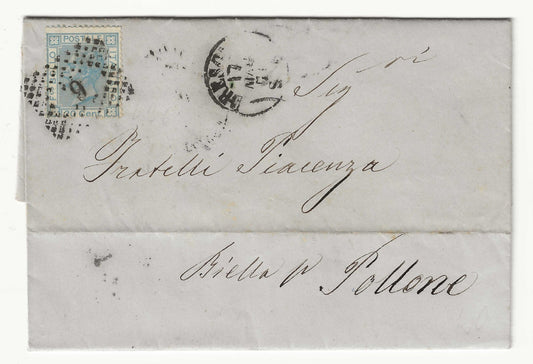 POSTALE
20 Cent
9
BRESC
Sigri
Fratelli Piacenza
Biella pr Pollone